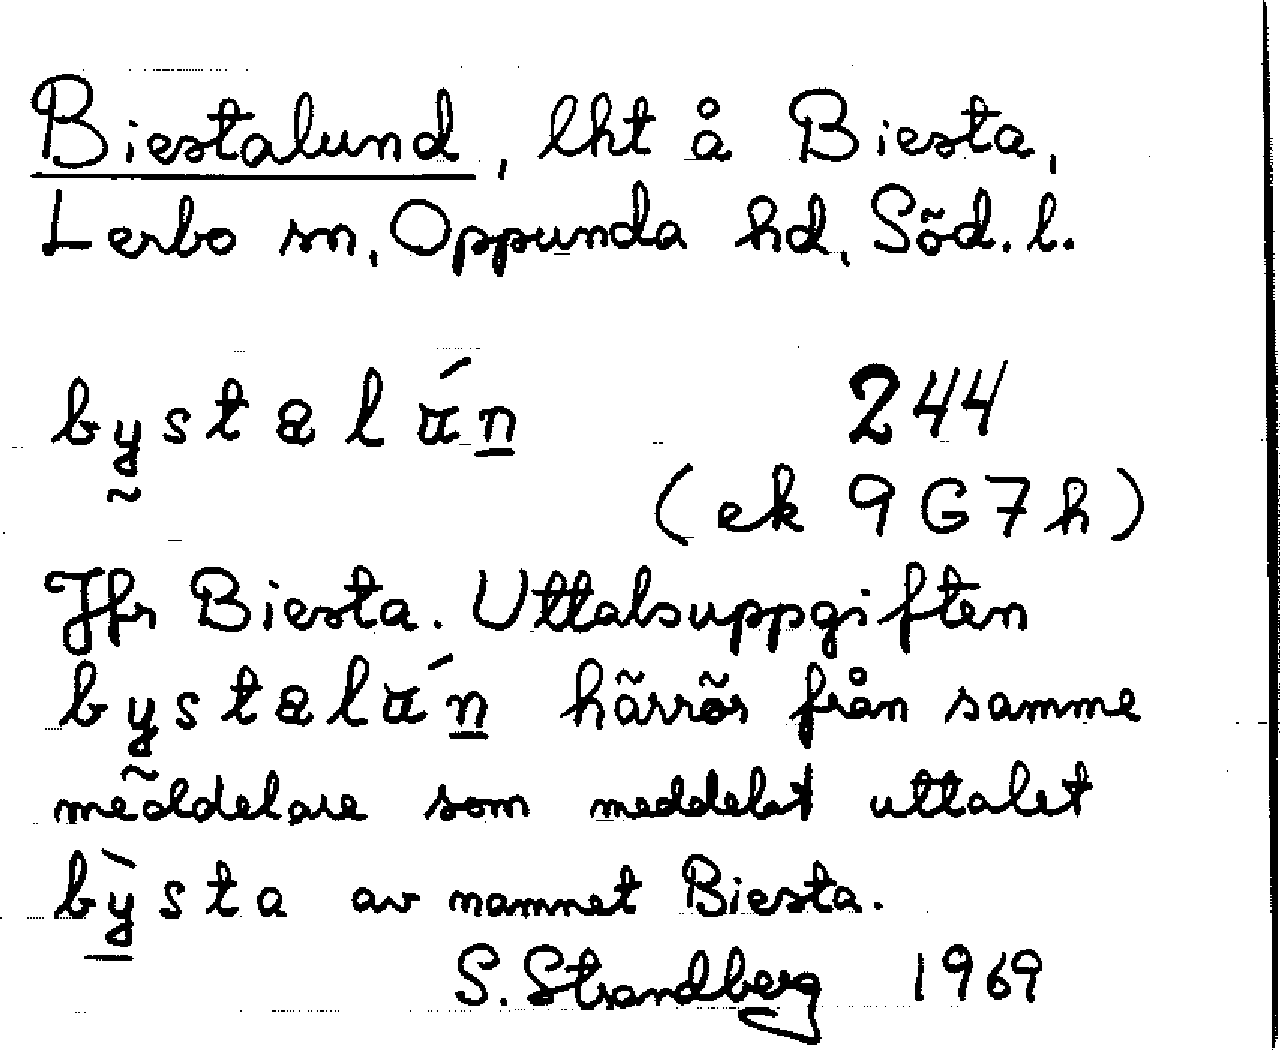 Biestalund, lht å Biesta,
Lerbo sn, Oppunda hd, Söd. l.
bystalún 244
(ek 9G7h)
Jfr Biesta. Uttalsuppgiften
bystalún härrör från samme
meddelare som meddelat uttalet
bỳsta av namnet Biesta.
S. Strandberg 1969